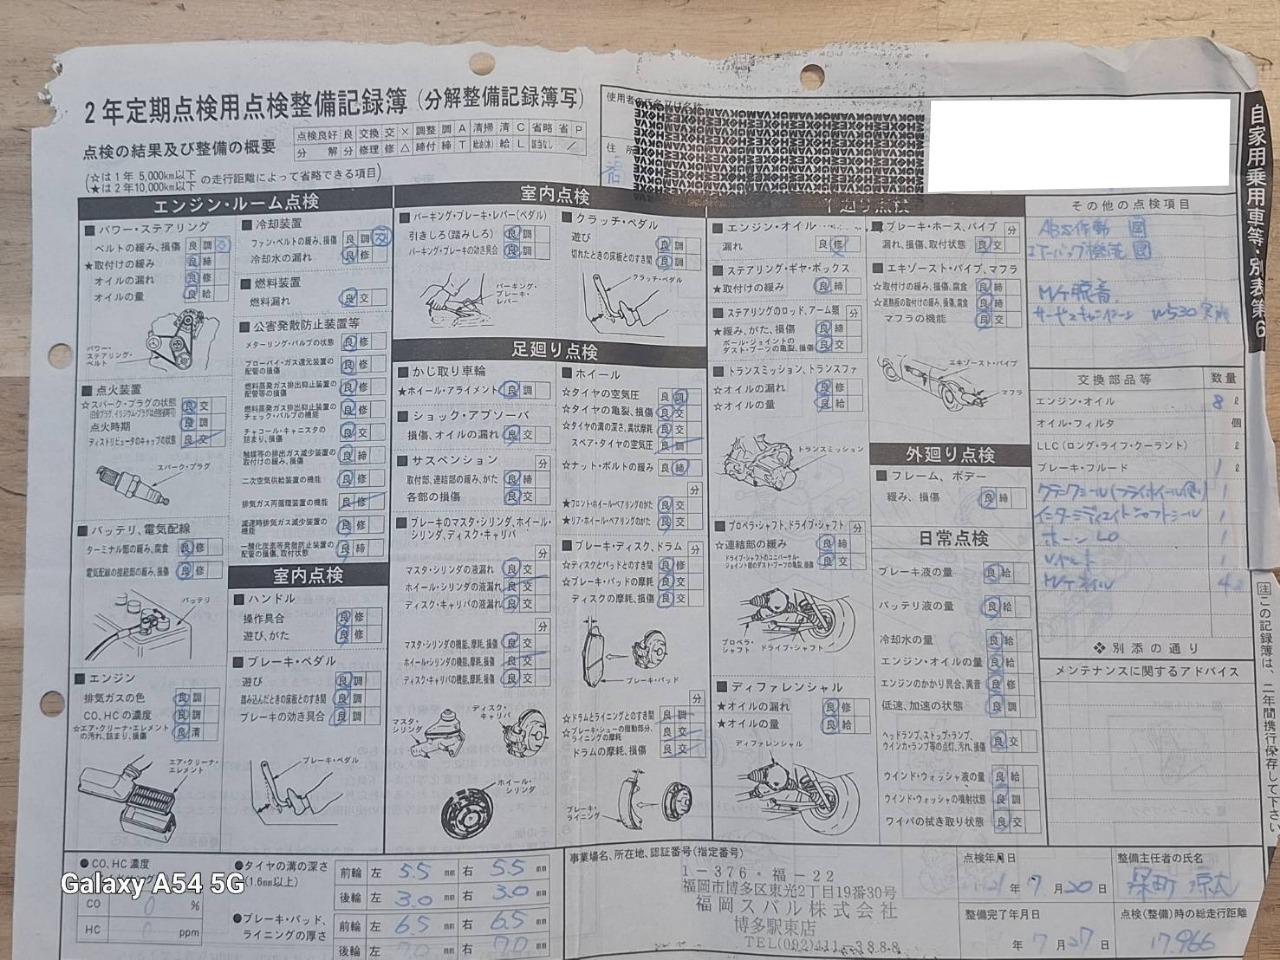 2年定期点検用点検整備記録簿(分解整備記録簿写)
点検の結果及び整備の概要
点検良好 良 交換 交 × 調整 調 A 清掃 清 C 省略 省 P
分解 分 修理 修 △ 締付 締 T 給油(水) 給 L 該当なし ／
(☆は1年 5,000km以下
★は2年10,000km以下 の走行距離によって省略できる項目)
使用者の氏名又は名称
住所
自家用乗用車等・別表第6
エンジン・ルーム点検
パワー・ステアリング
ベルトの緩み、損傷 良 調
★取付けの緩み 良 締
オイルの漏れ 良 修
オイルの量 良 給
パワー・ステアリング・ベルト
点火装置
☆スパーク・プラグの状態 良 交
点火時期 良 調
ディストリビュータのキャップの状態 良 交
スパーク・プラグ
バッテリ、電気配線
ターミナル部の緩み、腐食 良 修
電気配線の接続部の緩み、損傷 良 修
バッテリ
エンジン
排気ガスの色 良 調
CO、HCの濃度 良 調
☆エア・クリーナ・エレメントの汚れ、詰まり、損傷 良 清
エア・クリーナ・エレメント
冷却装置
ファン・ベルトの緩み、損傷 良 調 交
冷却水の漏れ 良 修
燃料装置
燃料漏れ 良 交
公害発散防止装置等
メターリング・バルブの状態 良 修
ブローバイ・ガス還元装置の配管の損傷 良 修
燃料蒸発ガス排出抑止装置の配管等の損傷 良 修
燃料蒸発ガス排出抑止装置のチェック・バルブの機能 良 修
チャコール・キャニスタの詰まり、損傷 良 修
触媒等の排出ガス減少装置の取付けの緩み、損傷 良 締
二次空気供給装置の機能 良 修
排気ガス再循環装置の機能 良 修
減速時排気ガス減少装置の機能 良 修
一酸化炭素等発散防止装置の配管の損傷、取付状態 良 締
室内点検
ハンドル
操作具合 良 修
遊び、がた 良 修
ブレーキ・ペダル
遊び 良 調
踏み込んだときの床板とのすき間 良 調
ブレーキの効き具合 良 調
ブレーキ・ペダル
室内点検
パーキング・ブレーキ・レバー(ペダル)
引きしろ(踏みしろ) 良 調
パーキング・ブレーキの効き具合 良 調
パーキング・ブレーキ・レバー
クラッチ・ペダル
遊び 良 調
切れたときの床板とのすき間 良 調
クラッチ・ペダル
足廻り点検
かじ取り車輪
★ホイール・アライメント 良 調
ショック・アブソーバ
損傷、オイルの漏れ 良 交
サスペンション 分
取付部、連結部の緩み、がた 良 締
各部の損傷 良 交
ブレーキのマスタ・シリンダ、ホイール・シリンダ、ディスク・キャリパ
分
マスタ・シリンダの液漏れ 良 交
ホイール・シリンダの液漏れ 良 交
ディスク・キャリパの液漏れ 良 交
分
マスタ・シリンダの機能、摩耗、損傷 良 交
ホイール・シリンダの機能、摩耗、損傷 良 交
ディスク・キャリパの機能、摩耗、損傷 良 交
マスタ・シリンダ
ディスク・キャリパ
ホイール・シリンダ
ホイール
☆タイヤの空気圧 良 調
☆タイヤの亀裂、損傷 良 交
☆タイヤの溝の深さ、異状摩耗 良 交
スペア・タイヤの空気圧 良 調
☆ナット・ボルトの緩み 良 締
分
★フロント・ホイール・ベアリングのがた 良 交
★リア・ホイール・ベアリングのがた 良 交
ブレーキ・ディスク、ドラム 分
☆ディスクとパッドとのすき間 良 修
☆ブレーキ・パッドの摩耗 良 交
ディスクの摩耗、損傷 良 交
ブレーキ・パッド
分
☆ドラムとライニングとのすき間 良 調
☆ブレーキ・シューの摺動部分、ライニングの摩耗 良 交
ドラムの摩耗、損傷 良 交
ブレーキ・ライニング
下廻り点検
エンジン・オイル
漏れ 良 修
ステアリング・ギヤ・ボックス
★取付けの緩み 良 締
ステアリングのロッド、アーム類 分
★緩み、がた、損傷 良 締
ボール・ジョイントのダスト・ブーツの亀裂、損傷 良 交
トランスミッション、トランスファ
☆オイルの漏れ 良 修
☆オイルの量 良 給
トランスミッション
プロペラ・シャフト、ドライブ・シャフト 分
☆連結部の緩み 良 締
ドライブ・シャフトのユニバーサル・ジョイント部のダスト・ブーツの亀裂、損傷 良 交
プロペラ・シャフト ドライブ・シャフト
ディファレンシャル
★オイルの漏れ 良 修
★オイルの量 良 給
ディファレンシャル
ブレーキ・ホース、パイプ 分
漏れ、損傷、取付状態 良 交
エキゾースト・パイプ、マフラ
☆取付けの緩み、損傷、腐食 良 締
☆遮熱板の取付けの緩み、損傷、腐食 良 締
マフラの機能 良 交
エキゾースト・パイプ
マフラ
外廻り点検
フレーム、ボデー
緩み、損傷 良 締
日常点検
ブレーキ液の量 良 給
バッテリ液の量 良 給
冷却水の量 良 給
エンジン・オイルの量 良 給
エンジンのかかり具合、異音 良 修
低速、加速の状態 良 調
ヘッドランプ、ストップ・ランプ、ウインカ・ランプ等の点灯、汚れ、損傷 良 交
ウインド・ウォッシャ液の量 良 給
ウインド・ウォッシャの噴射状態 良 調
ワイパの拭き取り状態 良 交
その他の点検項目
ABS作動 良
エアーバッグ機能 良
M/T 異音
サービスキャンペーン W530 実施
交換部品等 数量
エンジン・オイル 8 ℓ
オイル・フィルタ 個
LLC(ロング・ライフ・クーラント) ℓ
ブレーキ・フルード 1 ℓ
クランクシール(フライホイル側) 1
インターミディエイトシャフトシール 1
ホーン LO 1
Vベルト 1
M/T オイル 4
❖別添の通り
メンテナンスに関するアドバイス
注 この記録簿は、二年間携行保存して下さい。
CO、HC濃度
CO 0 %
HC 0 ppm
タイヤの溝の深さ (1.6mm以上)
前輪 左 5.5 mm 右 5.5 mm
後輪 左 3.0 mm 右 3.0 mm
ブレーキ・パッド、ライニングの厚さ
前輪 左 6.5 mm 右 6.5 mm
後輪 左 7.0 mm 右 7.0 mm
事業場名、所在地、認証番号(指定番号)
1-376・福-22
福岡市博多区東光2丁目19番30号
福岡スバル株式会社
博多駅東店
TEL(092)411-3888
点検年月日
21年7月20日
整備完了年月日
年7月27日
整備主任者の氏名
点検(整備)時の総走行距離
17,966
Galaxy A54 5G